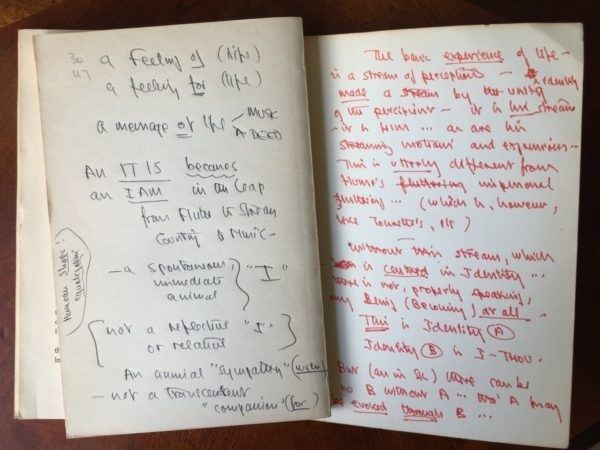 30
47
a Feeling of (life)
a feeling for (life)
a message of life
MUSIC
A DEED
An IT IS becomes
an I AM in an leap
from Flutter to Stream
Counting to Music -
- a spontaneous,
immediate
animal
"I"
not a reflective "I"
or relative
An animal "sympathy" (with)
- not a transcendent
"companion" (for)
Human Shape!
The basic experience of life -
is a stream of perceptions - identity
made a stream by the unity
of the percipient - it is his stream
- it is Him ... as are his
streaming motions and expressions -
This is utterly different from
Hume's fluttering impersonal
fluttering ... (which is, however,
like Tourette's,
Without this stream, which
is centred in Identity ...
there is not, properly speaking,
any Being (Becoming) at all.
This is Identity A
Identity B is I-THOU.
But (as in Sk) there can be
no B without A ... tho' A may
be evoked through B ...